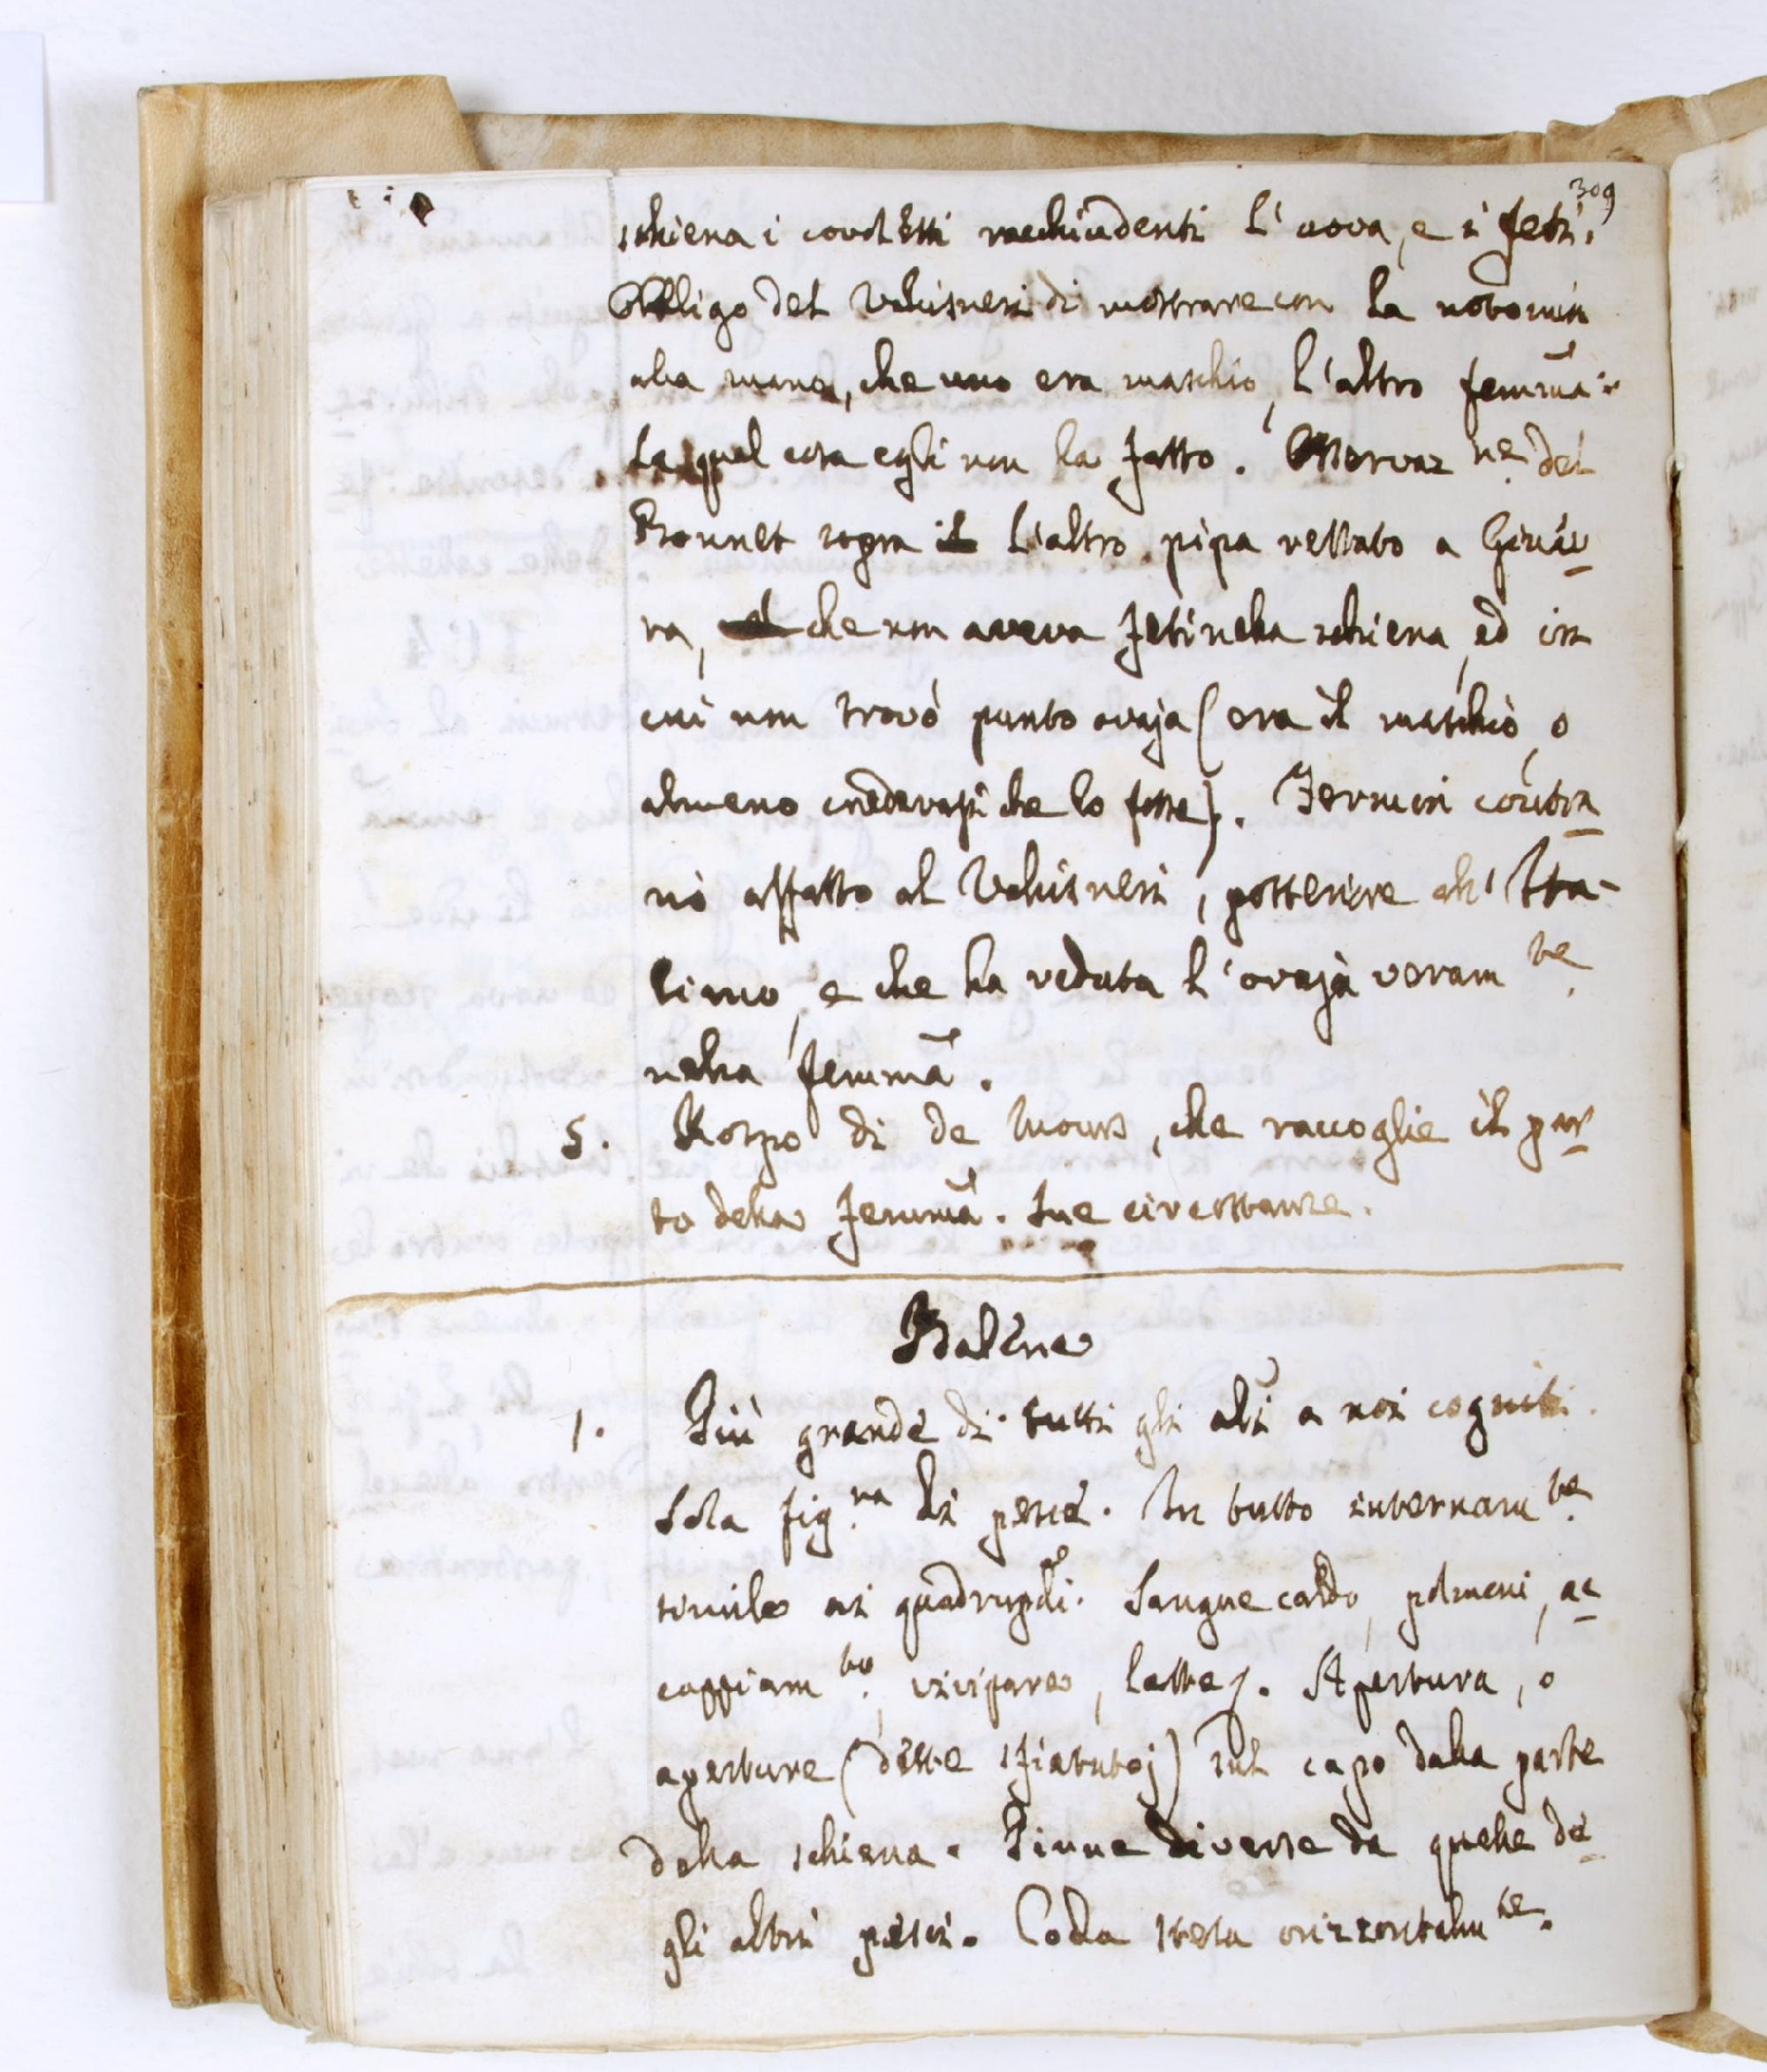 309
schiena i condotti racchiudenti l'uova, e i feti.
Obbligo del Valisneri di mostrare con la notomia
alla mano, che uno era maschio, l'altro femmã:
La qual cosa egli non ha fatto. Osservaz.ne del
Bonnet sopra il l'altro pipa restato a Ginev
ra, che non aveva feti nella schiena, ed in
cui non trovò punto ovaja (era il maschio, o
almeno credevasi che lo fosse). Fermin contra
rio affatto al Valisneri, posteriore all'Ita-
liano, e che ha veduta l'ovaja veram.te
nella femmã.
5. Rospo di de Mours, che raccoglie il par
to della femmã. Sue circostanze.
Balena
1. Più grande di tutti gli alĩ a noi cogniti.
Sola fig.ra di pesce. In tutto internam.te
simile ai quadrupedi. Sangue caldo, polmoni, ac
coppiam.to, vivipare, latte). Apertura, o
aperture (dette sfiatatoj) sul capo dalla parte
della schiena. Pinne diverse da quelle de
gli altri pesci. Coda stesa orizzontalm.te.